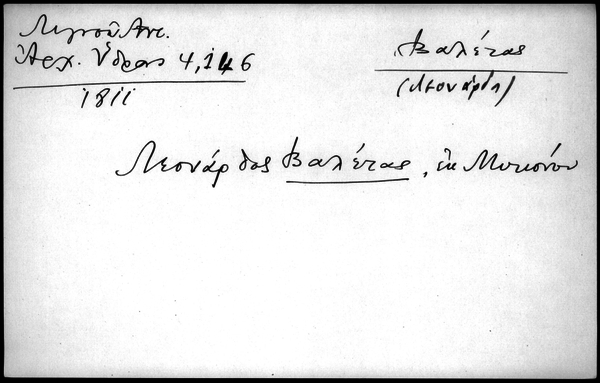 Λιγνοῦ Ἀντ.
Ἀρχ. Ὕδρας 4,146
1811
Βαλέτας
(Λεονάρδος)
Λεονάρδος Βαλέτας, ἐκ Μυκόνου